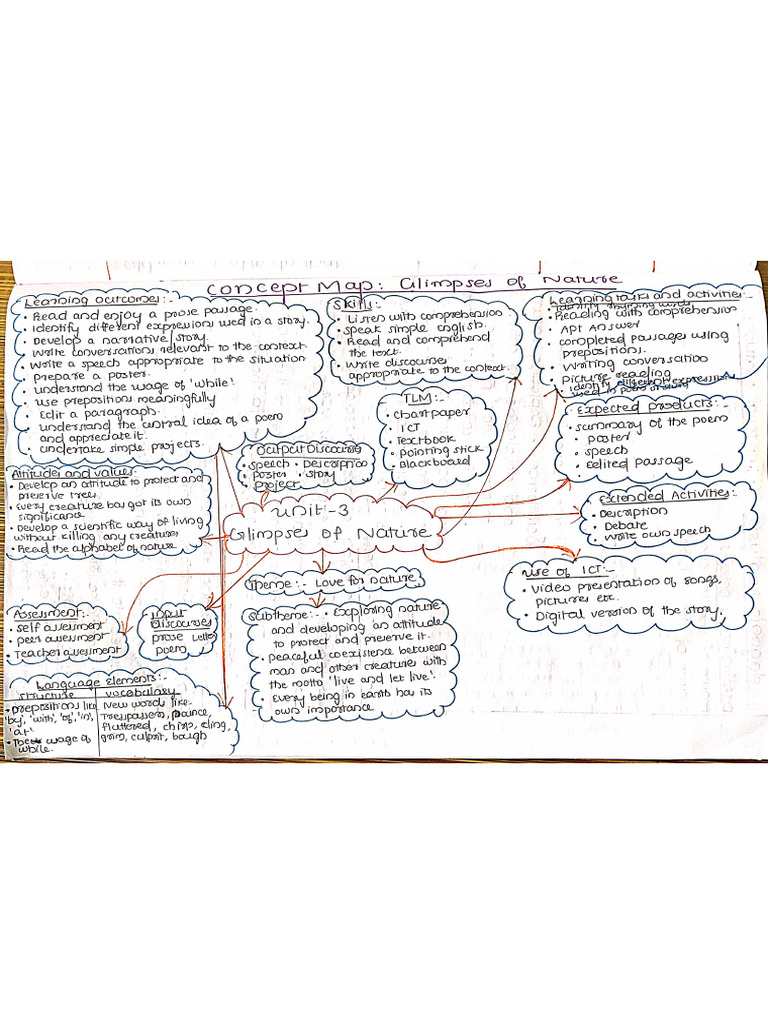 Concept Map: Glimpses of Nature
Learning outcomes:-
• Read and enjoy a prose passage.
• Identify different expressions used in a story.
• Develop a narrative/story.
• Write conversations relevant to the context.
• Write a speech appropriate to the situation
• prepare a poster.
• understand the usage of 'while'.
• use prepositions meaningfully
• Edit a paragraph.
• understand the central idea of a poem
and appreciate it.
• undertake simple projects.
Skills:-
• Listen with comprehension
• Speak simple english.
• Read and comprehend
the text.
• Write discourses
appropriate to the context.
Learning tasks and activities:-
Identify rhyming words
• Reading with comprehension
• Apt answer
• completed passage using
prepositions.
• Writing conversation
• picture reading
• identify different expressions
used in poem or story
TLM:-
• Chartpaper
• ICT
• Textbook
• pointing stick
• Blackboard
Expected products:-
• summary of the poem
• poster
• speech
• edited passage
Output Discourse
Speech • Description
poster • Story
project
Attitudes and values
• Develop an attitude to protect and
preserve trees.
• Every creature has got its own
significance
• Develop a scientific way of living
without killing any creatures
• Read the alphabet of nature
Unit-3
Glimpses of Nature
Extended Activities:-
• Description
• Debate
• Write own speech
Theme:- Love for nature
Use of ICT:-
• Video presentation of songs,
pictures etc.
• Digital version of the story.
Assessment:-
• Self assessment
• peer assessment
• Teacher assessment
Input
Discourses
prose Letter
poem
Subtheme:- • Exploring nature
and developing an attitude
to protect and preserve it.
• peaceful coexistence between
man and other creatures with
the motto 'live and let live'.
• Every being in earth has its
own importance
Language Elements:-
Structure vocabulary
• prepositions like
'by', 'with', 'of', 'in',
'at'
• usage of
while.
New words like
Trespassers, pounce,
fluttered, chirp, cling,
grim, culprit, bough